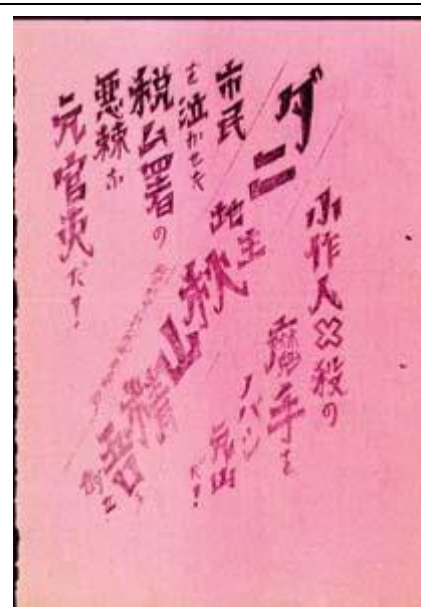 小作人✕殺の
魔手を
ノバシ
ダニ
地主
秋山精
市民
を泣かせた
税ム署の
悪辣な
元官吏だ!